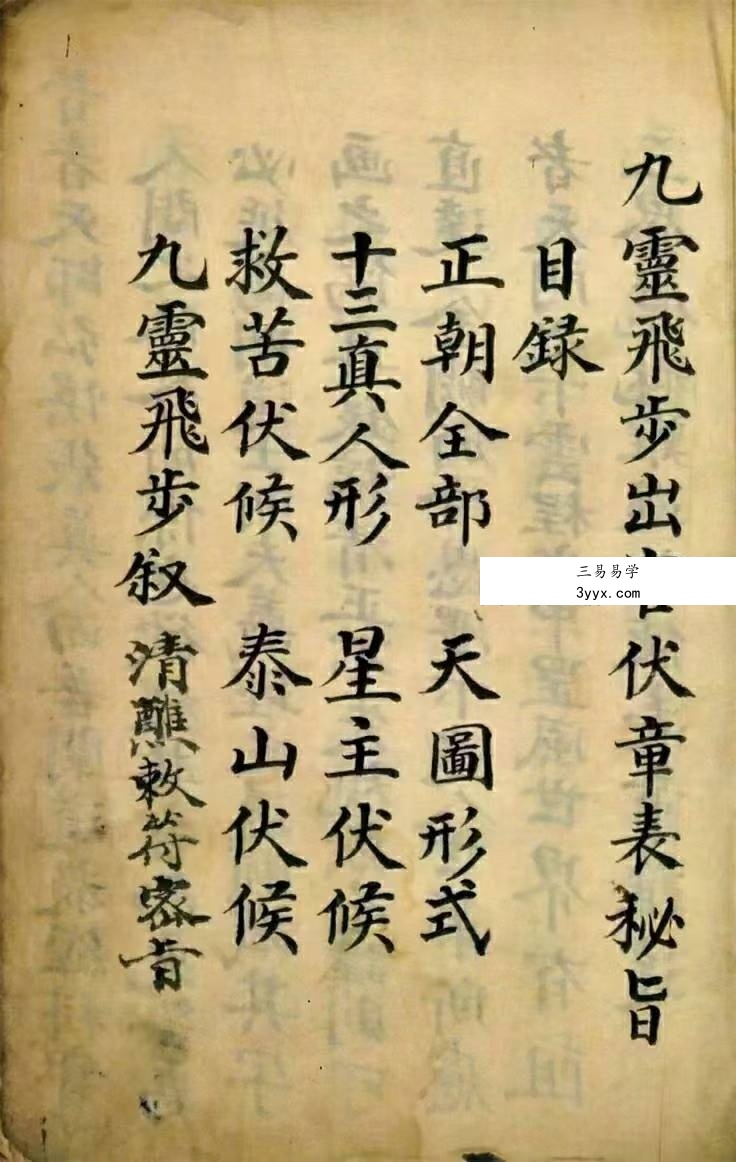 九靈飛步出官伏章表秘旨
目録
正朝全部 天圖形式
十三真人形 星主伏候
救苦伏候 泰山伏候
九靈飛步叙 清醮敕符密旨
三易易学
3yyx.com